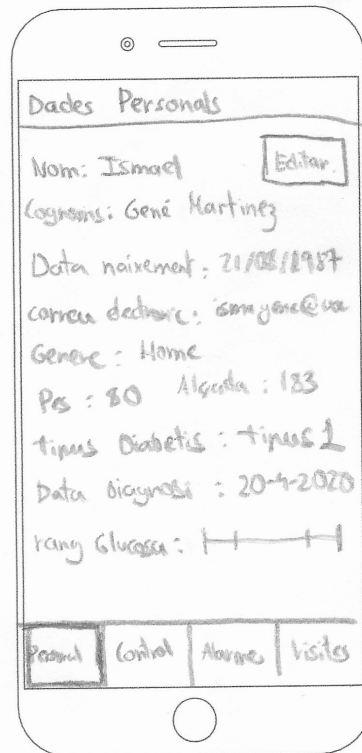 Dades Personals
Editar
Nom: Ismael
Cognoms: Gené Martinez
Data naixement: 21/08/1987
correu electronic: ismagene@uoc
Genere: Home
Pes: 80 Alçada: 183
tipus Diabetis: tipus 1
Data Diagnosi: 20-4-2020
rang Glucosa:
Personal Control Alarmes Visites